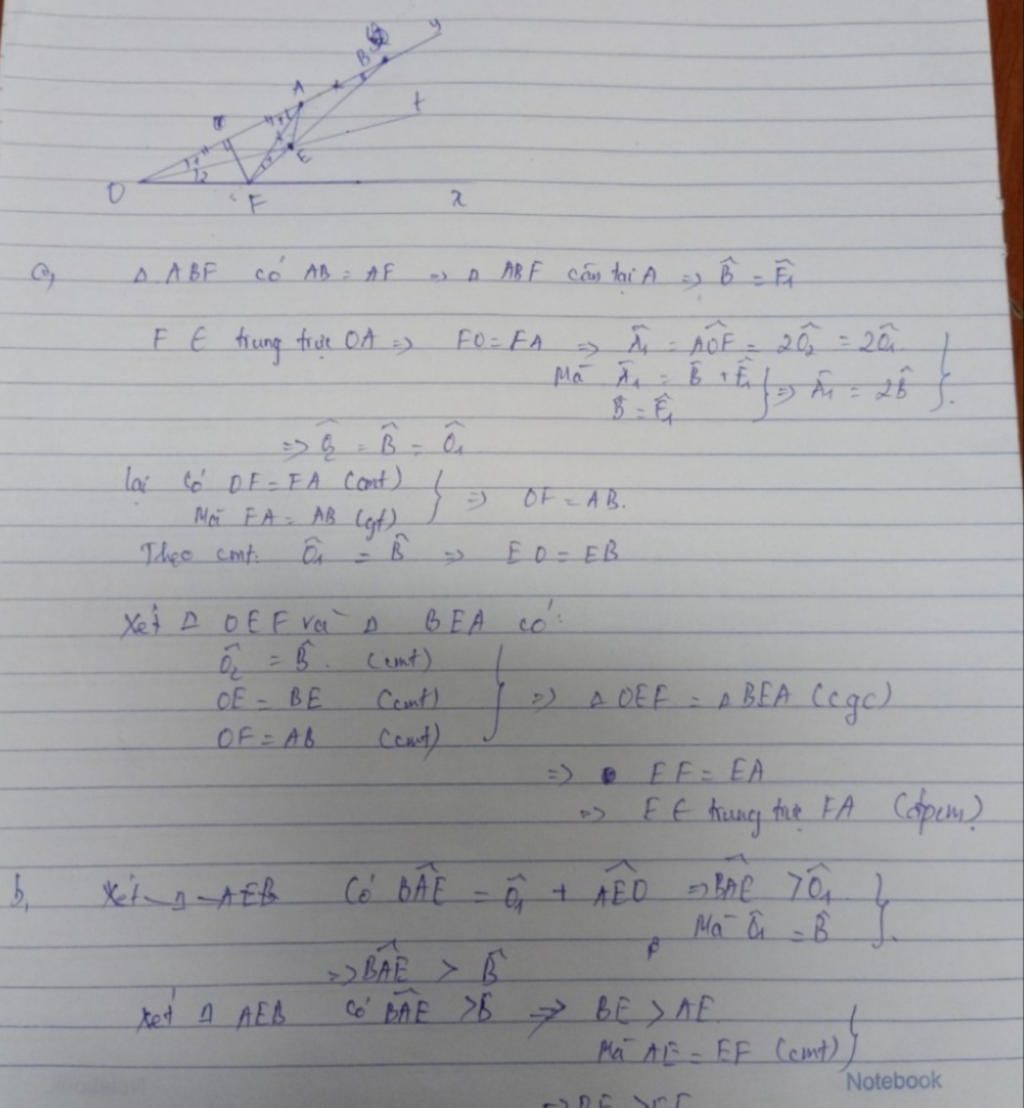 y
B
A
t
E
O
F
x
a, Δ ABF có AB = AF => Δ ABF cân tại A => B̂ = F̂₁
F ∈ trung trực OA => FO = FA => Â₁ = AÔF = 2Ô₂ = 2Ô₁
Mà Â₁ = B̂ + F̂₁
B̂ = F̂₁ => Â₁ = 2B̂
=> Ô₂ = B̂ = Ô₁
lại có OF = FA (cmt)
Mà FA = AB (gt) => OF = AB.
Theo cmt: Ô₁ = B̂ => EO = EB
Xét Δ OEF và Δ BEA có:
Ô₂ = B̂. (cmt)
OE = BE (cmt) => Δ OEF = Δ BEA (cgc)
OF = AB (cmt)
=> EF = EA
=> E ∈ trung trực FA (đpcm)
b, Xét Δ AEB Có BÂE = Ô₁ + AÊO => BÂE > Ô₁
Mà Ô₁ = B̂
=> BÂE > B̂
Xét Δ AEB có BÂE > B̂ => BE > AE
Mà AE = EF (cmt)
Notebook
=> BE > EF